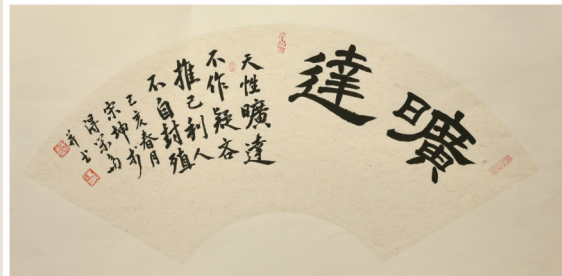 曠達
天性曠達
不作疑吝
推己利人
不自封殖
己亥春月
宗坤